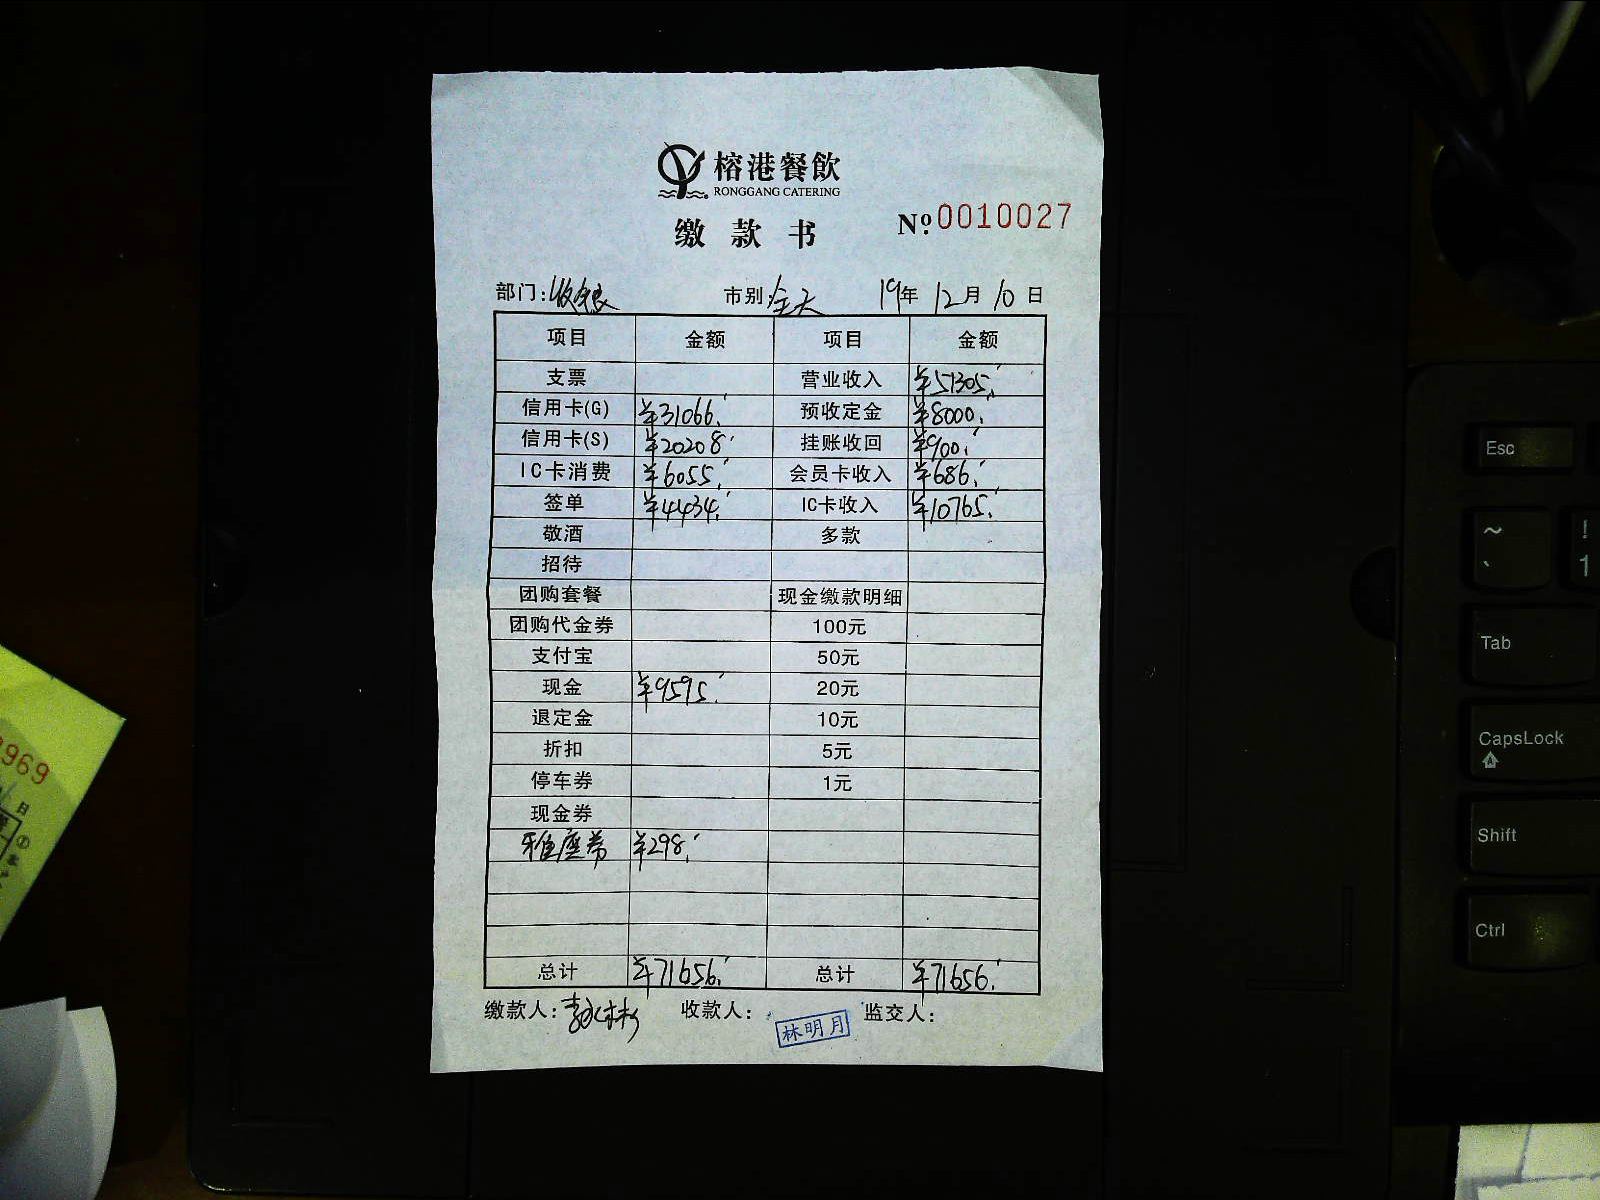 榕港餐飲
RONGGANG CATERING
缴款书
№.0010027
部门:收银 市别:全天 19年 12月 10日
项目 金额 项目 金额
支票 营业收入 ¥51305.
信用卡(G) ¥31066. 预收定金 ¥8000.
信用卡(S) ¥20208 挂账收回 ¥900.
IC卡消费 ¥6055. 会员卡收入 ¥686.
签单 ¥4434. IC卡收入 ¥10765.
敬酒 多款
招待
团购套餐 现金缴款明细
团购代金券 100元
支付宝 50元
现金 ¥9595. 20元
退定金 10元
折扣 5元
停车券 1元
现金券
雅座券 ¥298.
总计 ¥71656. 总计 ¥71656.
缴款人: 收款人: 林明月 监交人:
969
日
Esc
~
、
!
1
Tab
CapsLock
A
Shift
Ctrl